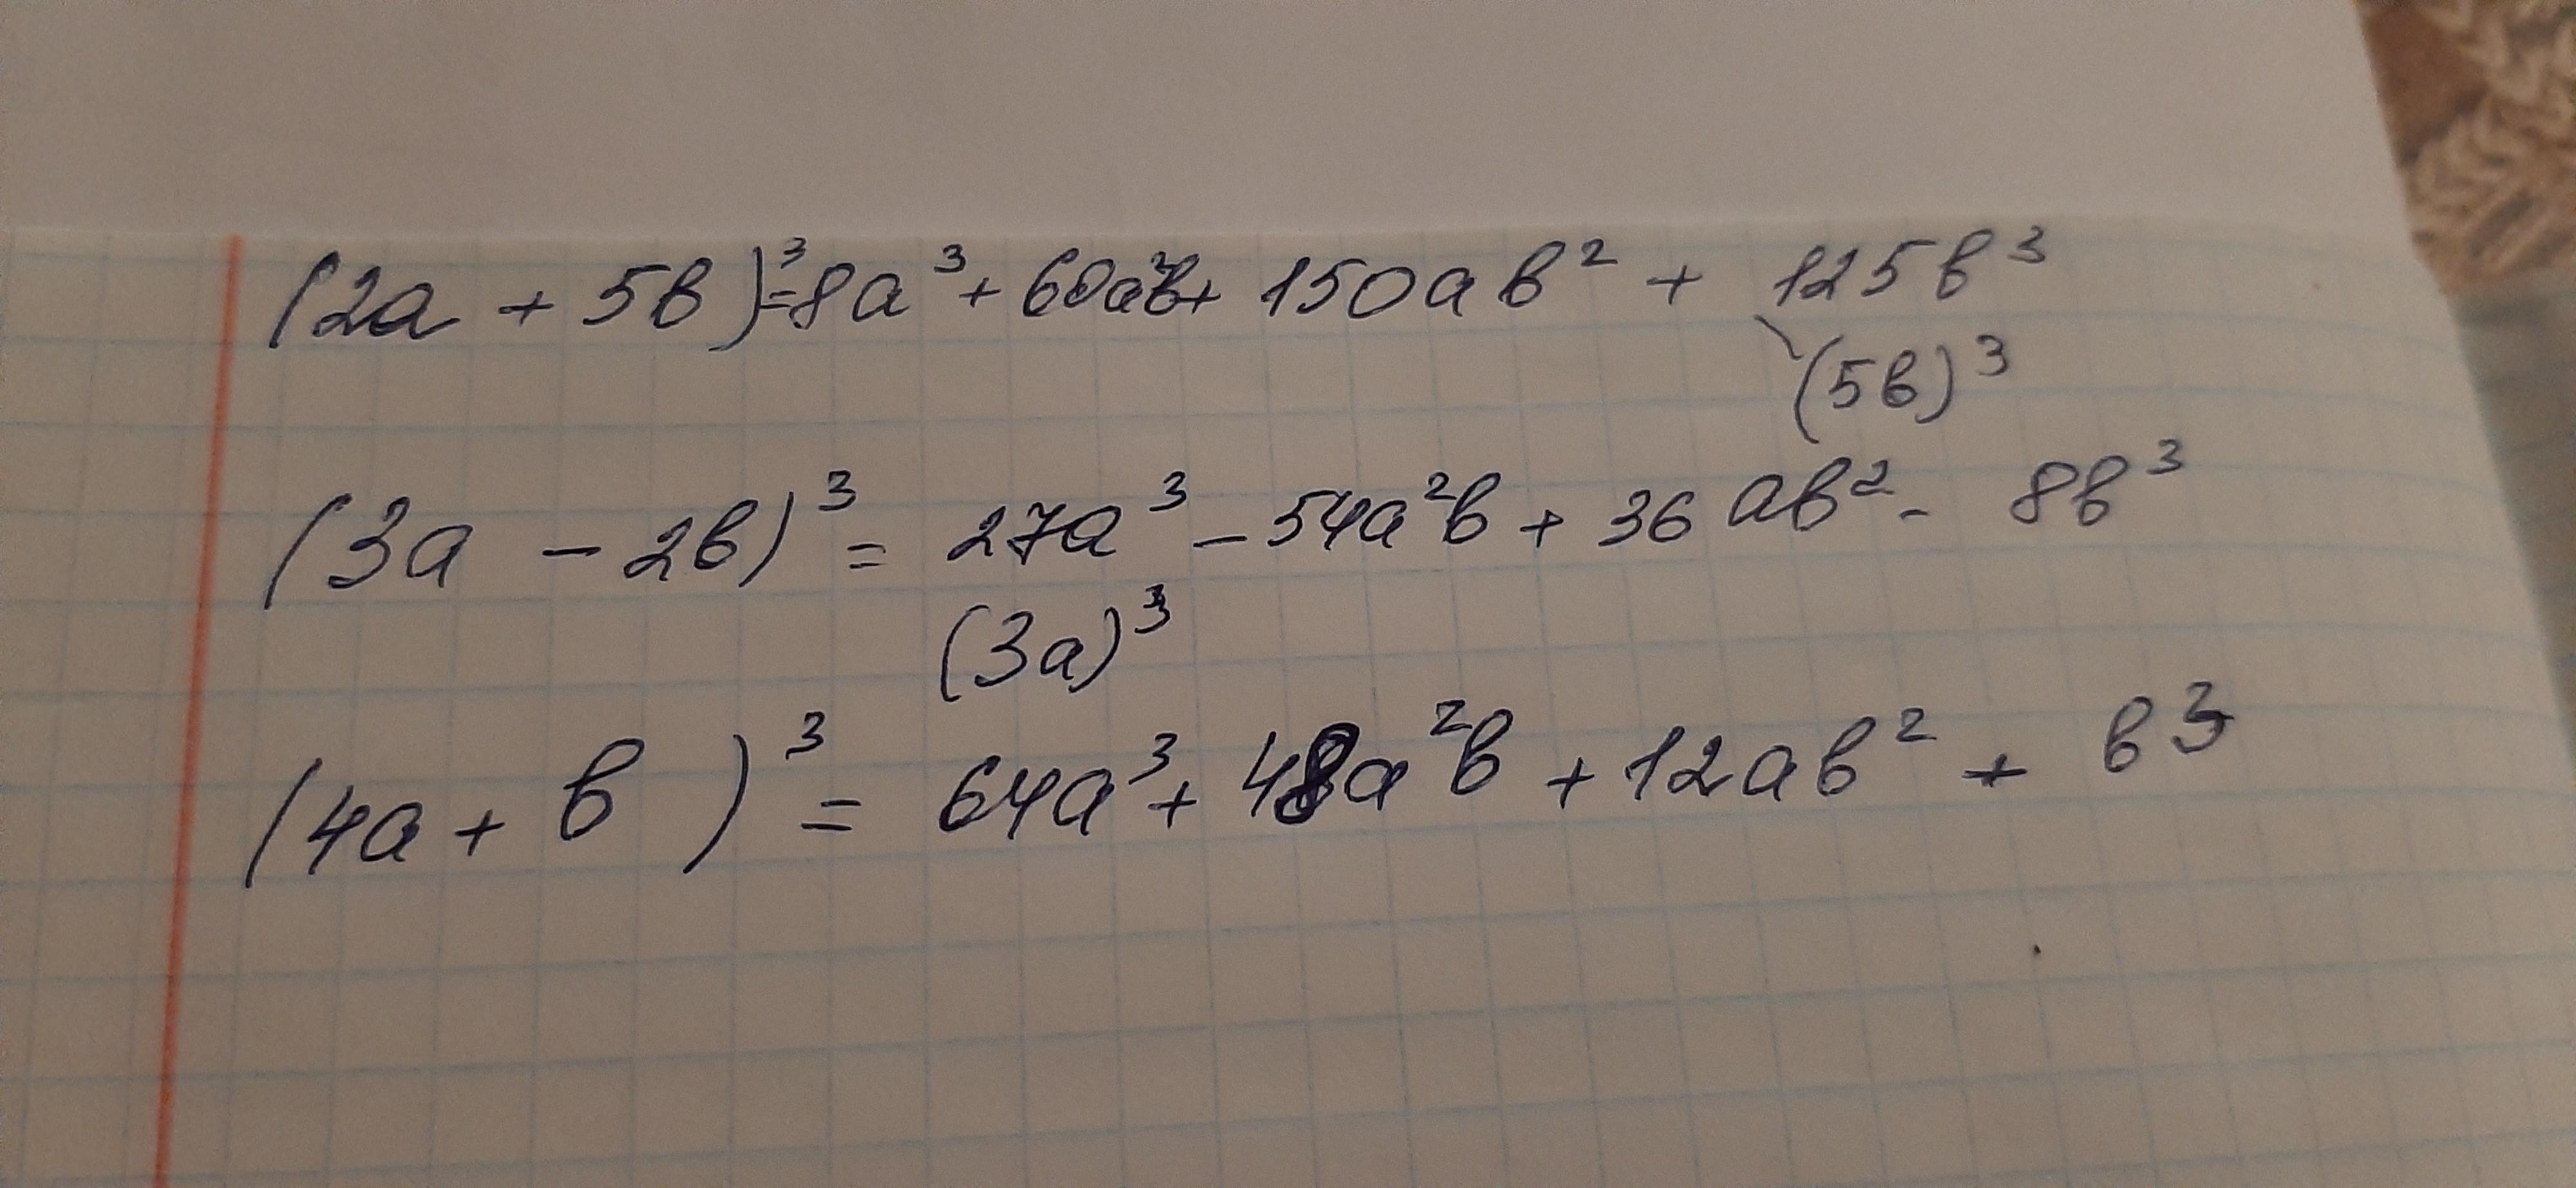 (2a + 5b)³=8a³+60a²b+ 150ab² + 125b³
(5b)³
(3a - 2b)³ = 27a³ - 54a²b + 36 ab² - 8b³
(3a)³
(4a + b )³ = 64a³ + 48a²b + 12ab² + b³